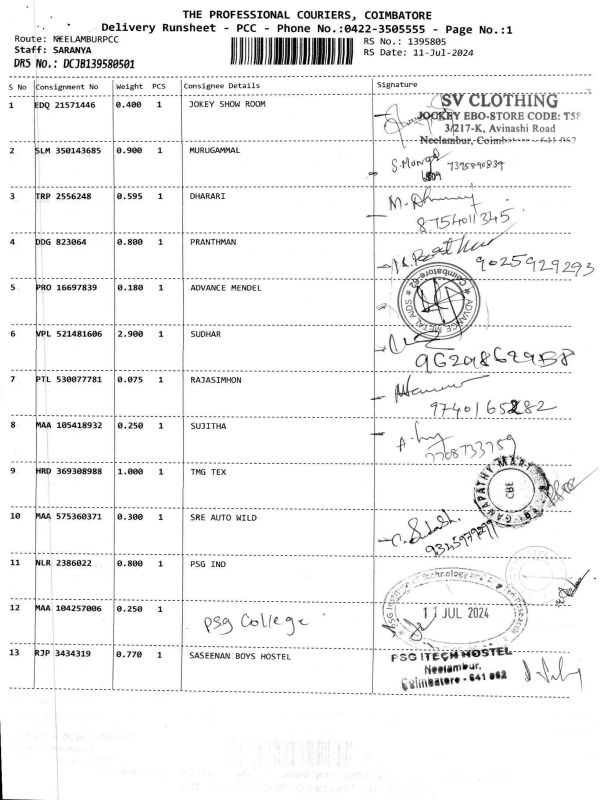 THE PROFESSIONAL COURIERS, COIMBATORE
Delivery Runsheet - PCC - Phone No.:0422-3505555 - Page No.:1
Route: NEELAMBURPCC
RS No.: 1395805
Staff: SARANYA
RS Date: 11-Jul-2024
DRS No.: DCJB139580501
S No Consignment No Weight PCS Consignee Details Signature
1 EDQ 21571446 0.400 1 JOKEY SHOW ROOM
SV CLOTHING
JOCKEY EBO-STORE CODE: T58
3/217-K, Avinashi Road
Neelambur, Coimbatore - 641 062
2 SLM 350143685 0.900 1 MURUGAMMAL
3 TRP 2556248 0.595 1 DHARARI
8754011345
4 DDG 823064 0.800 1 PRANTHMAN
9025929293
5 PRO 16697839 0.180 1 ADVANCE MENDEL
ADVANCE METAL AIDS * Coimbatore-62 *
6 VPL 521481606 2.900 1 SUDHAR
7 PTL 530077781 0.075 1 RAJASIMHON
8 MAA 105418932 0.250 1 SUJITHA
7708733759
9 HRD 369308988 1.000 1 TMG TEX
GANAPATHY MART
CBE
10 MAA 575360371 0.300 1 SRE AUTO WILD
11 NLR 2386022 0.800 1 PSG IND
12 MAA 104257006 0.250 1
PSG College
11 JUL 2024
13 RJP 3434319 0.770 1 SASEENAN BOYS HOSTEL
PSG ITECH HOSTEL
Neelambur,
Coimbatore - 641 062